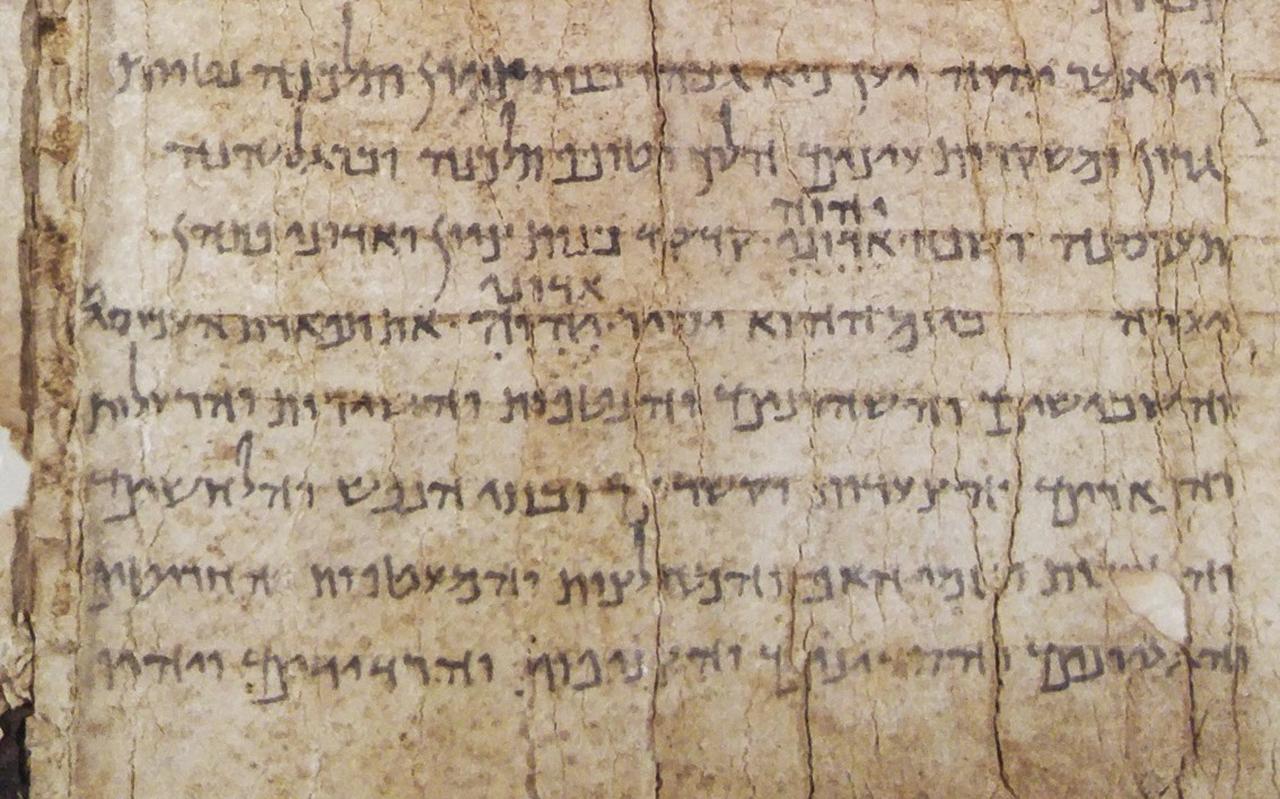 ויואמר יהוה יען כיא גבהו בנות ציון תלכנה נטוות
גרון ומשקרות עינים הלוך וטופף תלכנה וברגליהנה
יהוה
תעכסנה ושפח אדוני קדקד בנות ציון ואדוני פתהן
אדוני
יערה ביום ההוא יסיר יהוה את תפארת העכיסים
והשבישים והשהרנים והנטפות והשירות והרעלות
והפארים והצעדות והקשרים ובתי הנפש והלחשים
והטבעות ונזמי האף והמחלצות והמעטפות והחריטים
והגליונים והסדינים והצניפות והרדידים ויהיו